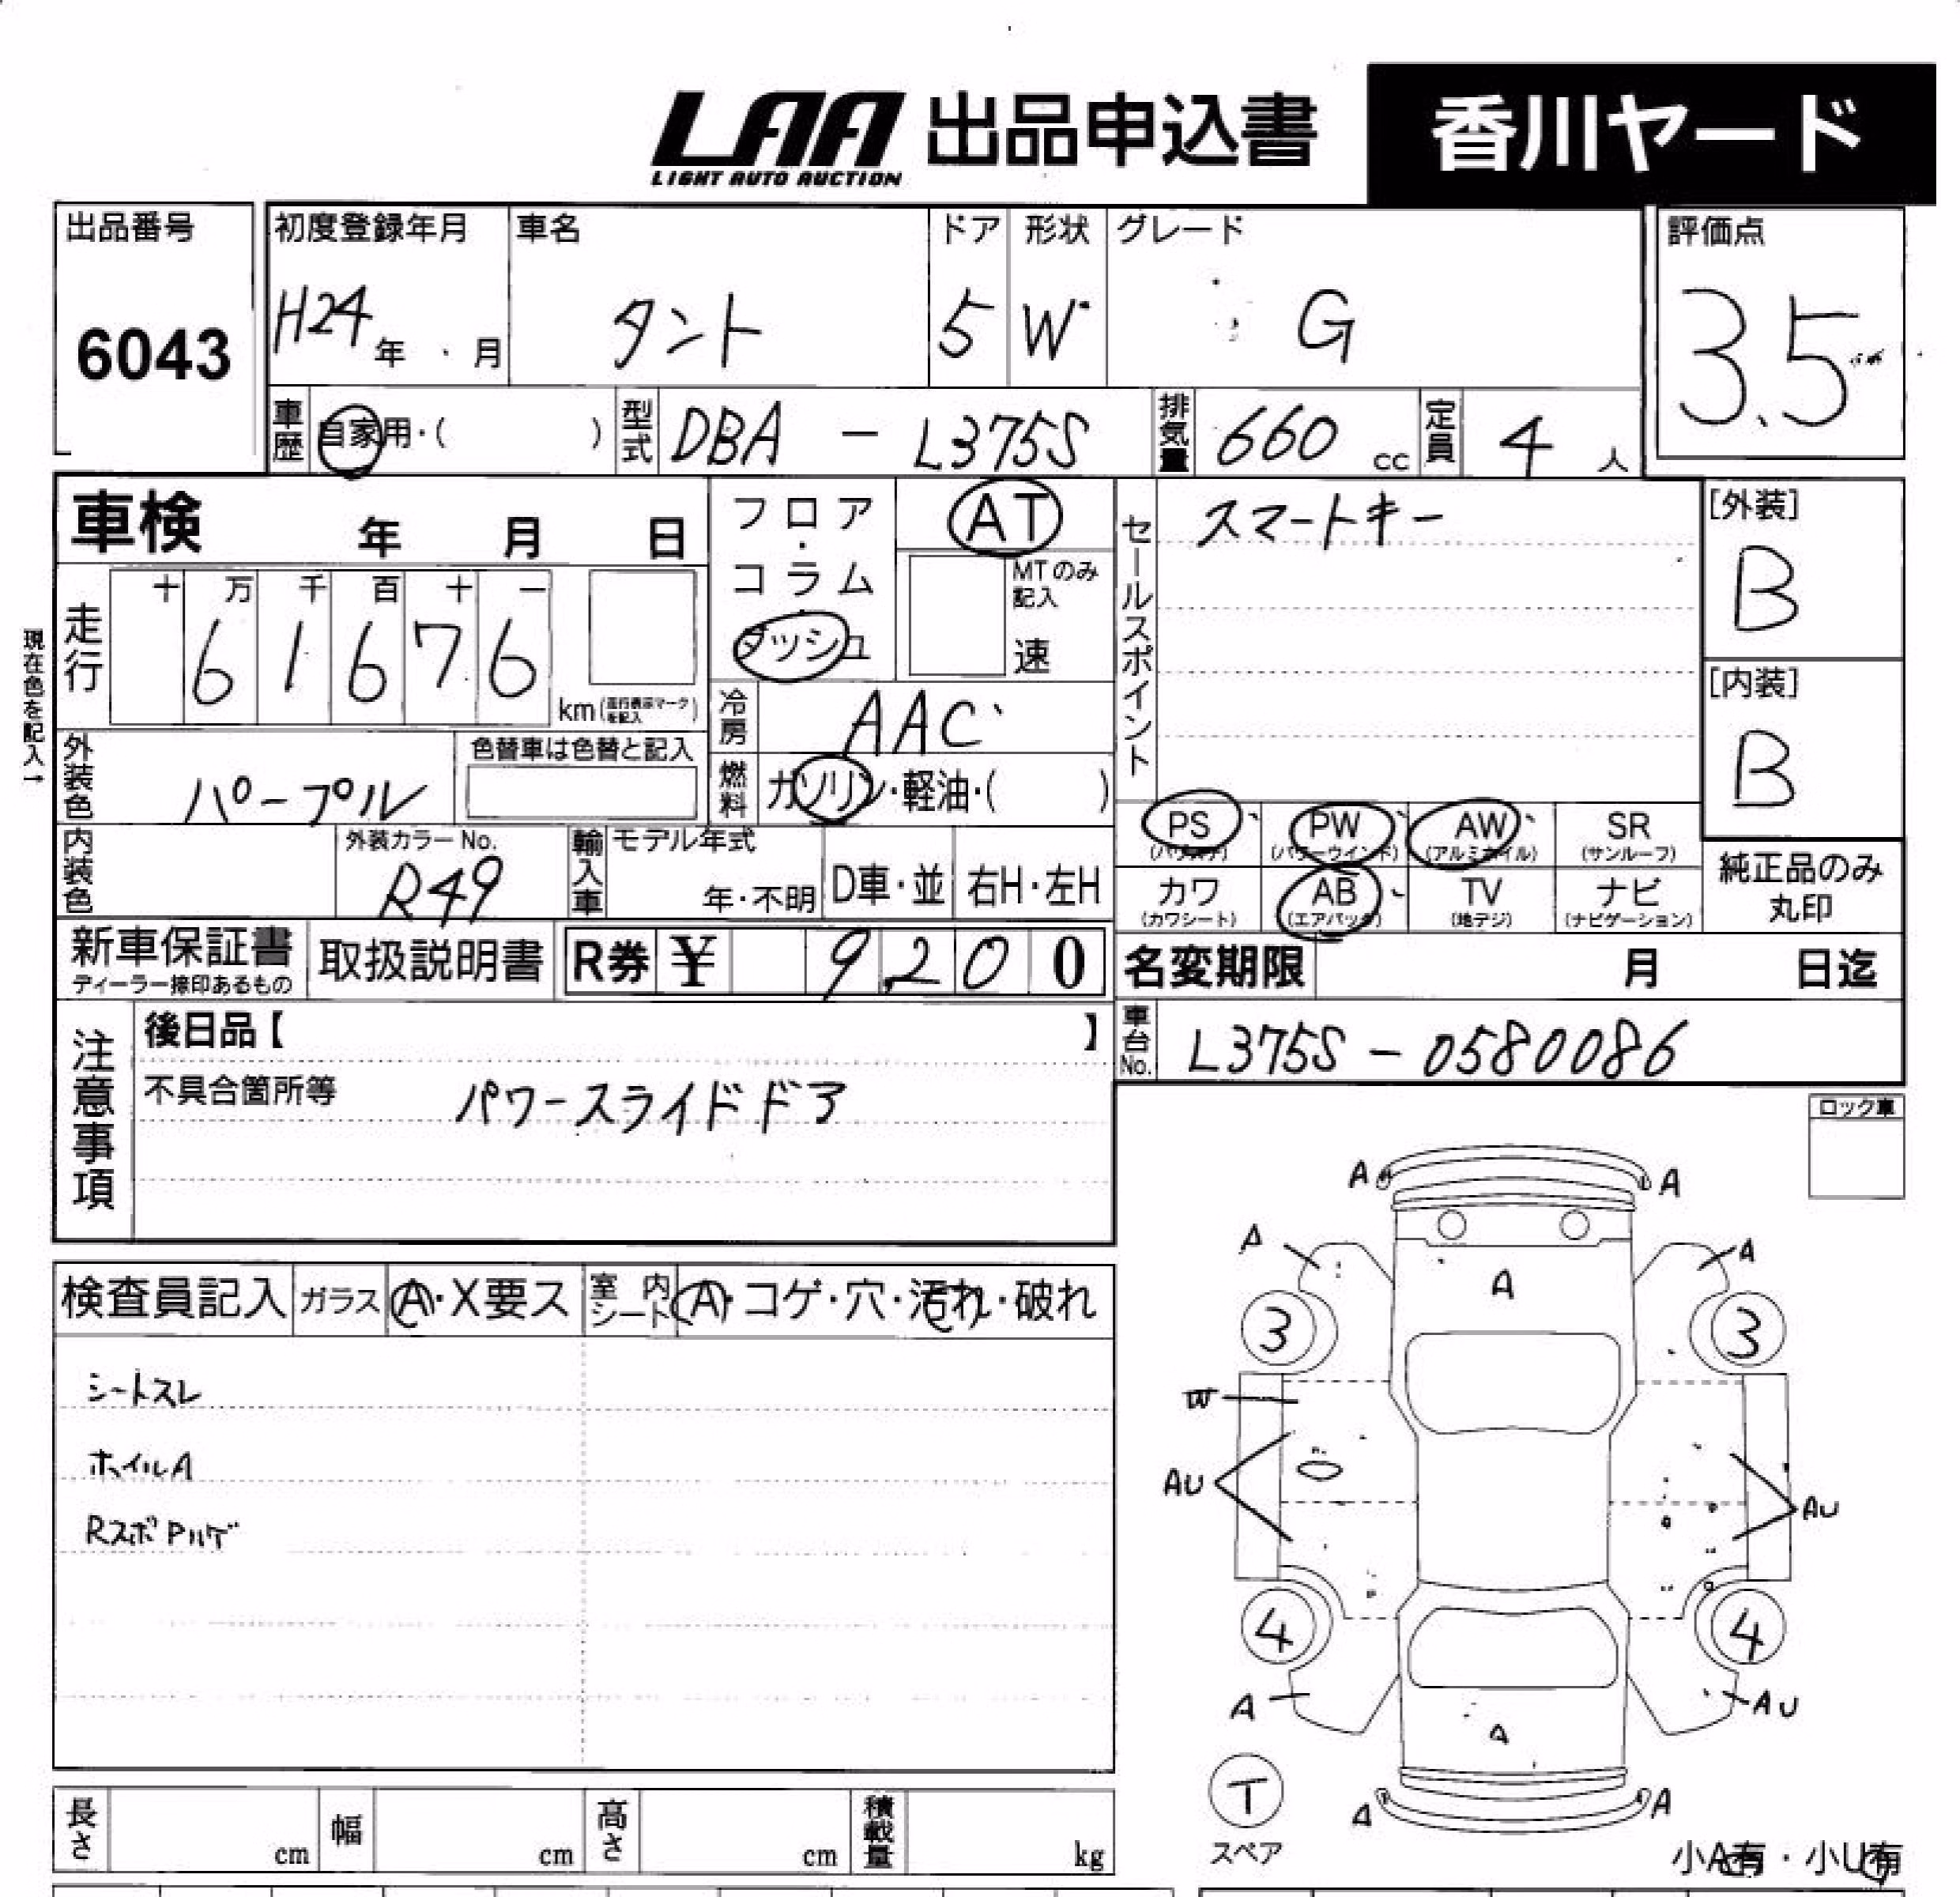 LAA 出品申込書 香川ヤード
LIGHT AUTO AUCTION
出品番号 初度登録年月 車名 ドア 形状 グレード 評価点
6043 H24年 月 タント 5 W G 3.5
車歴 自家用・( ) 型式 DBA - L375S 排気量 660 cc 定員 4 人
車検 年 月 日 フロア・コラム・ダッシュ AT
MTのみ記入 速
セールスポイント スマートキー
[外装] B
[内装] B
現在色を記入→
走行 十 万 千 百 十 一
6 1 6 7 6 km
冷房 AAC
外装色 パープル 色替車は色替と記入
燃料 ガソリン・軽油・( )
内装色 外装カラーNo. R49 輸入車 モデル年式 年・不明 D車・並 右H・左H
PS (パワステ) PW (パワーウインド) AW (アルミホイル) SR (サンルーフ)
カワ (カワシート) AB (エアバック) TV (地デジ) ナビ (ナビゲーション)
純正品のみ
丸印
新車保証書 取扱説明書 R券 ¥ 9 2 0 0
ディーラー捺印あるもの
名変期限 月 日迄
車台No. L375S - 0580086
注意事項
後日品【 】
不具合箇所等 パワースライドドア
ロック車
検査員記入 ガラス A・X要ス 室内シート A・コゲ・穴・汚れ・破れ
シートスレ
ホイルA
RスポPハゲ
A A
A A
A
3 3
W
AU AU
4 4
A AU
A
T
スペア
A A
小A有・小U有
長さ cm 幅 cm 高さ cm 積載量 kg